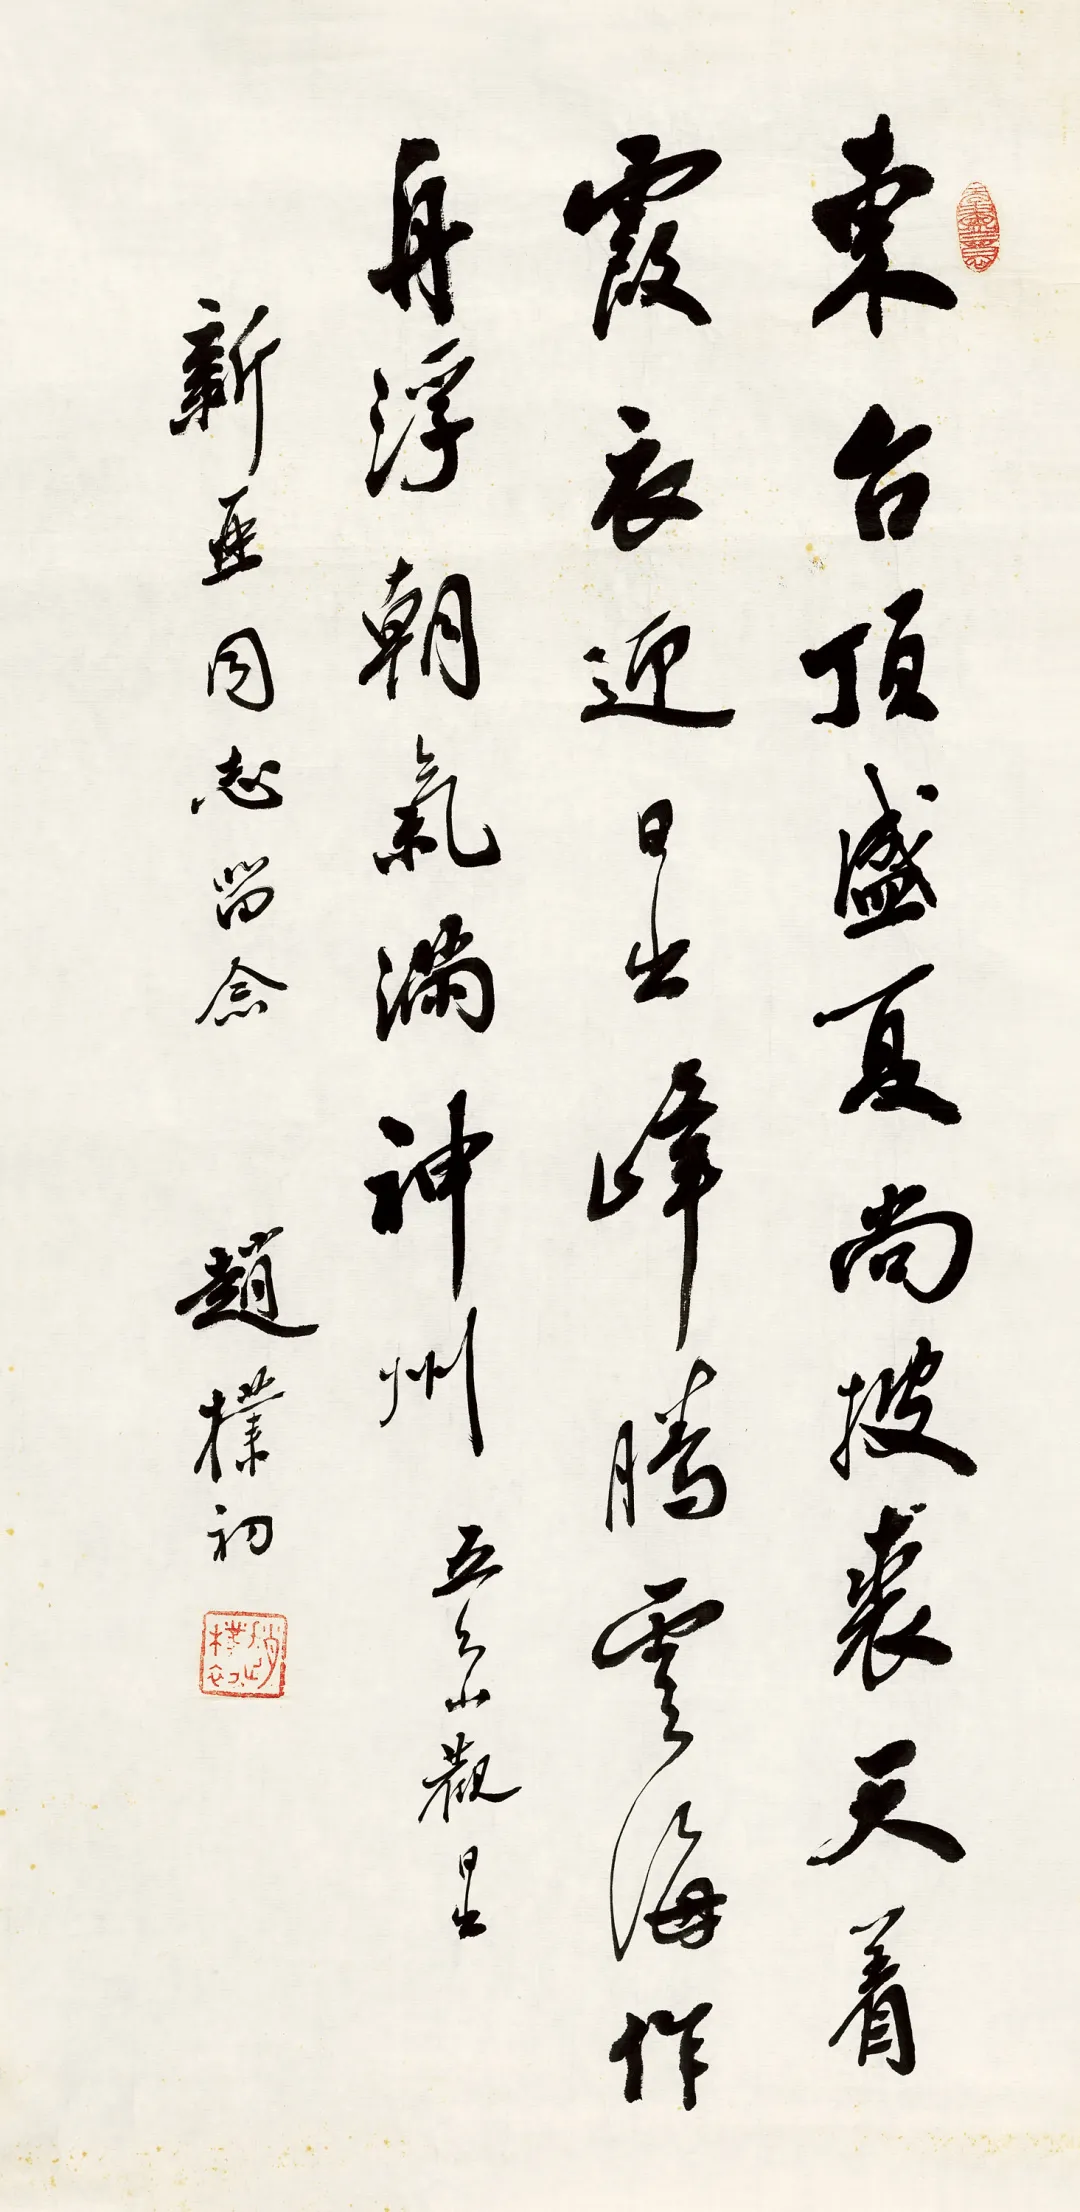 東台頂盛夏尚披裘天着
霞衣迎日出峰騰雲海作
舟浮朝氣滿神州 五台山觀日出
新亚同志留念 趙樸初
趙樸初